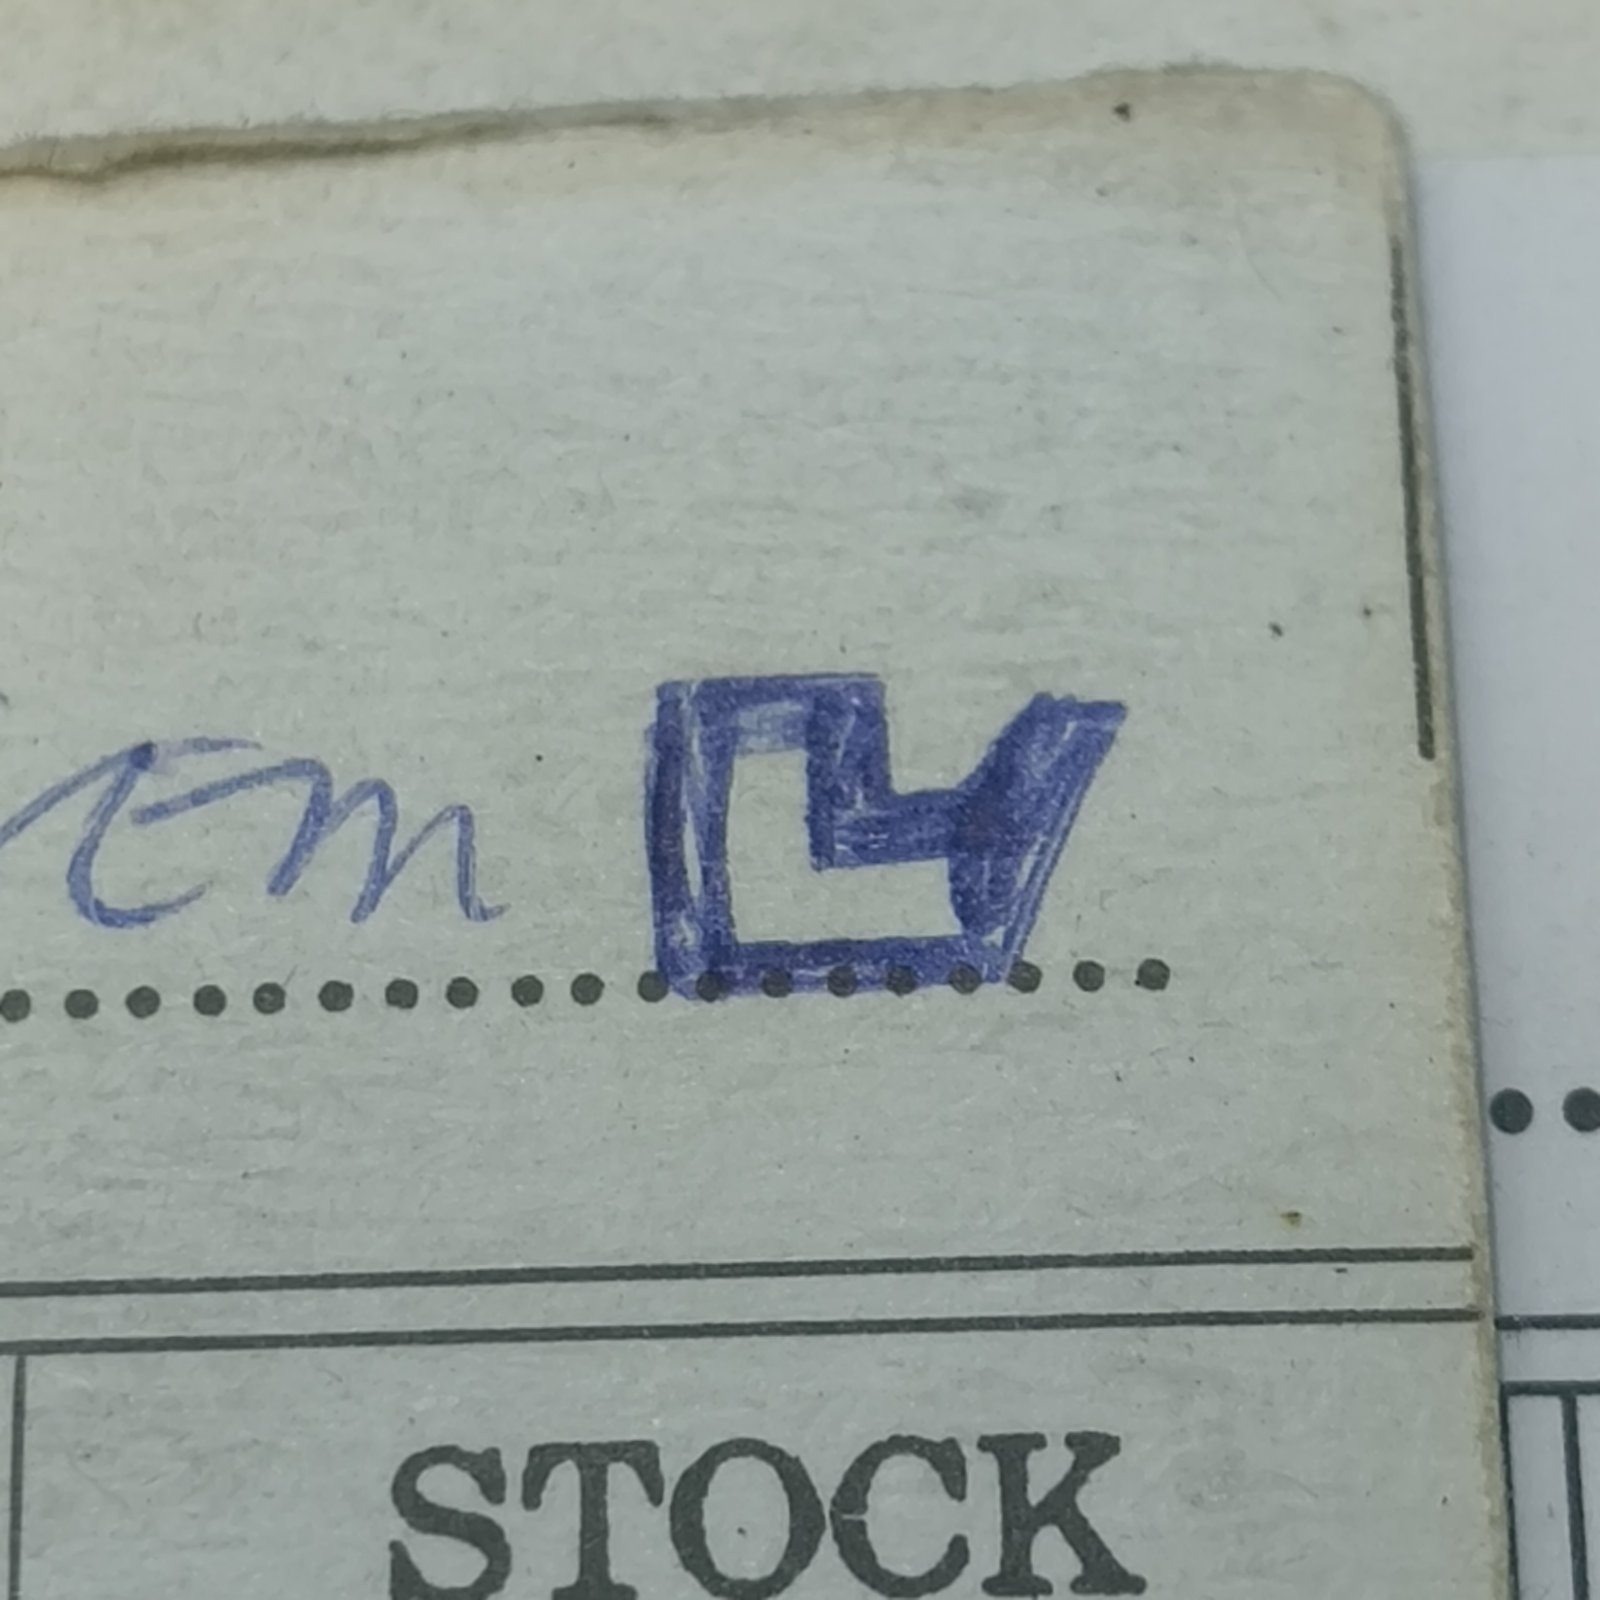 Em
STOCK